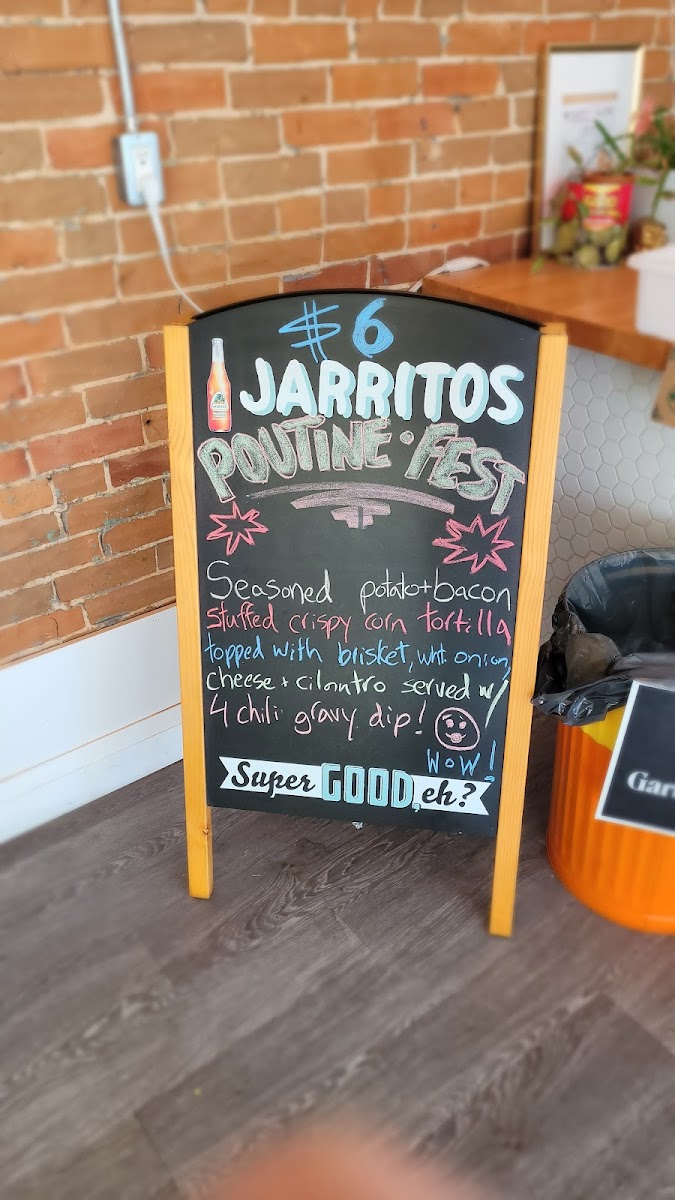 $6
JARRITOS
POUTINE • FEST
Seasoned potato + bacon
stuffed crispy corn tortilla
topped with brisket, wht. onion,
cheese + cilantro served w/
4 chili gravy dip!
WOW!
Super GOOD, eh?
Gar